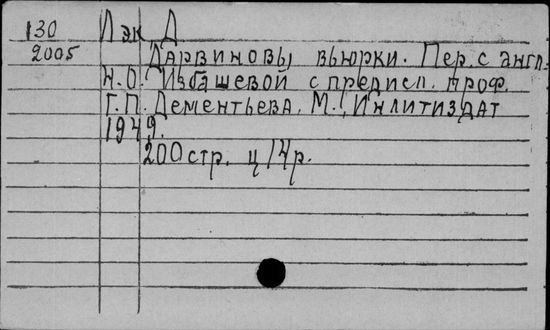 130 Лэк Д
2005 Дарвиновы вьюрки. Пер. с англ.
Н.О. Извашевой с предисл. проф.
Г.П. Дементьева. М., Инлитиздат
1949.
200 стр. ц 14р.